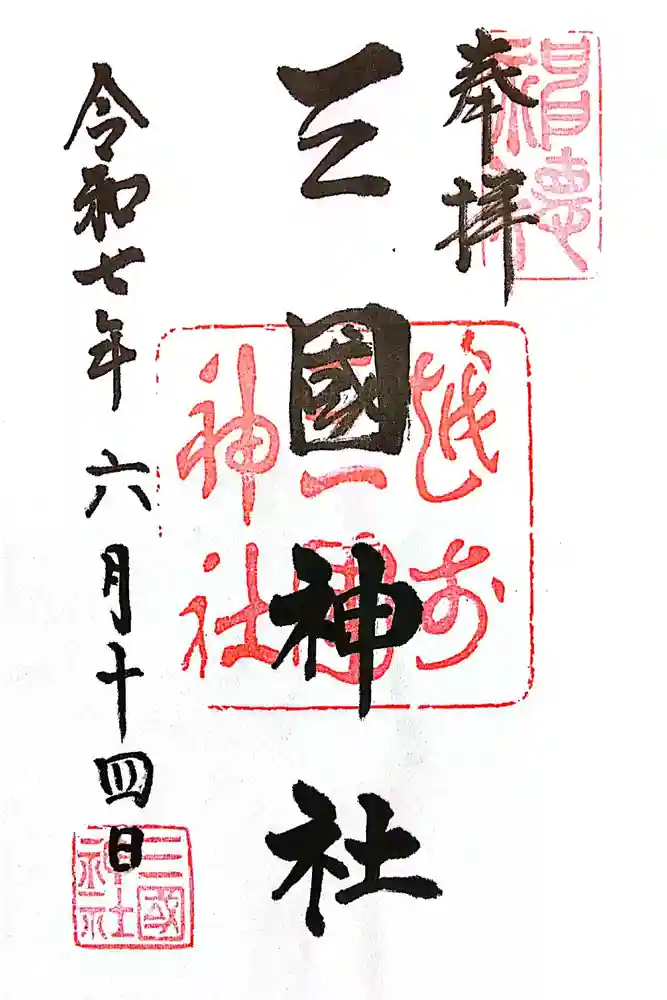 奉拝
越前
三國
神社
三國神社
令和七年六月十四日
三國
神社